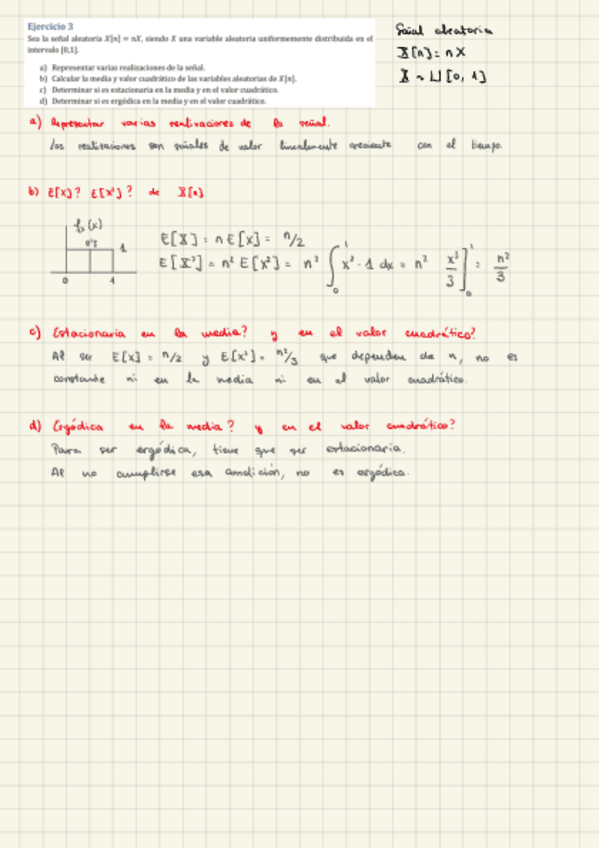 Ejercicio 3
Sea la señal aleatoria X[n] = nX, siendo X una variable aleatoria uniformemente distribuida en el
intervalo [0,1].
a) Representar varias realizaciones de la señal.
b) Calcular la media y valor cuadrático de las variables aleatorias de X[n].
c) Determinar si es estacionaria en la media y en el valor cuadrático.
d) Determinar si es ergódica en la media y en el valor cuadrático.
Señal aleatoria
X[n] = nX
X ~ U[0, 1]
a) Representar varias realizaciones de la señal.
Las realizaciones son señales de valor linealmente creciente con el tiempo.
b) E[X]? E[X²]? de X[n]
fx(x)
0'5 1
0 1
E[X] = n E[x] = n/2
E[X²] = n² E[x²] = n² ∫₀¹ x² · 1 dx = n² x³/3 ]₀¹ = n²/3
c) Estacionaria en la media? y en el valor cuadrático?
Al ser E[x] = n/2 y E[x²] = n²/3 que dependen de n, no es
constante ni en la media ni en el valor cuadrático.
d) Ergódica en la media? y en el valor cuadrático?
Para ser ergódica, tiene que ser estacionaria.
Al no cumplirse esa condición, no es ergódica.